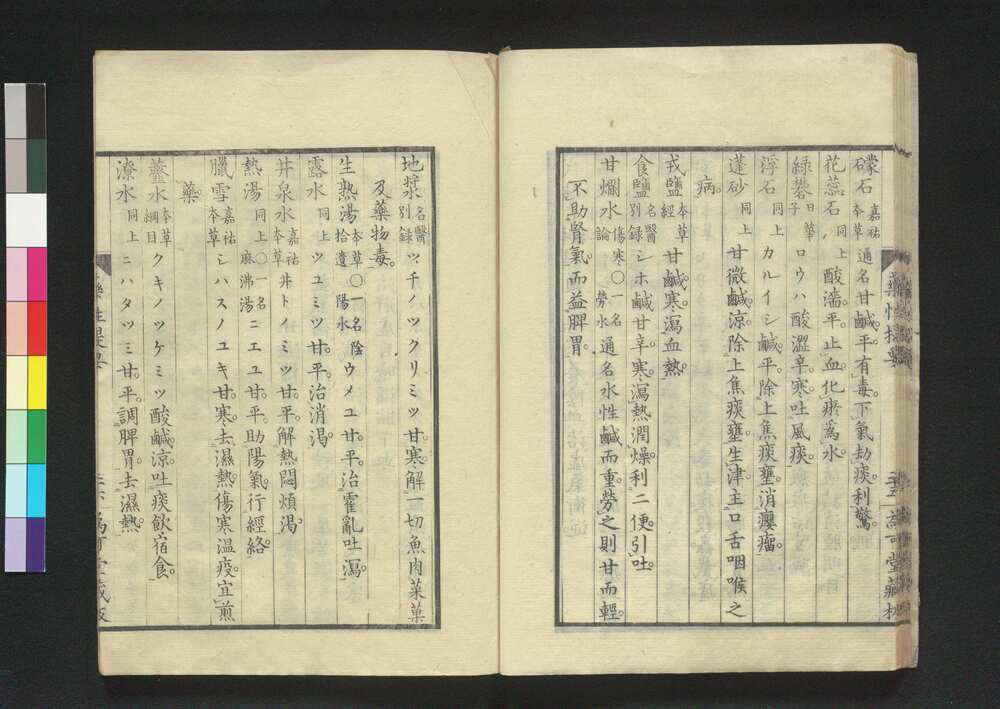 礞石 嘉祐本草 通名甘鹹。平有毒。下氣劫痰。利驚。
花蕊石 同上 酸濇。平。止血。化瘀爲水。
綠礬 日華子 ロウハ 酸澀辛寒。吐風痰。
浮石 同上 カルイシ鹹。平。除上焦痰壅。消癭瘤。
蓬砂 同上 甘微鹹。涼。除上焦痰壅。生津。主口舌咽喉之
病。
戎鹽 本草經 甘鹹。寒。瀉血熱。
食鹽 名醫別錄 シホ鹹甘辛。寒。瀉熱。潤燥。利二便。引吐。
甘爛水 傷寒論 〇一名勞水 通名水性鹹而重。勞之則甘而輕。
不助腎氣。而益脾胃。
地漿 名醫別錄 ツチノツクリミツ甘。寒。解一切魚肉菜菓
及藥物毒。
生熟湯 本草拾遺 〇一名陰陽水 ウメユ甘。平。治霍亂吐瀉。
露水 同上 ツユミツ甘。平。治消渴。
井泉水 嘉祐本草 井トノミツ甘。平。解熱悶煩渴。
熱湯 同上 〇一名麻沸湯 ニエユ甘。平。助陽氣。行經絡。
臘雪 嘉祐本草 シハスノユキ甘。寒。去濕熱。傷寒溫疫。宜煎
藥。
虀水 本草綱目 クキノツケミツ酸鹹。涼。吐痰飲宿食。
潦水 同上 ニハタツミ甘。平。調脾胃。去濕熱。